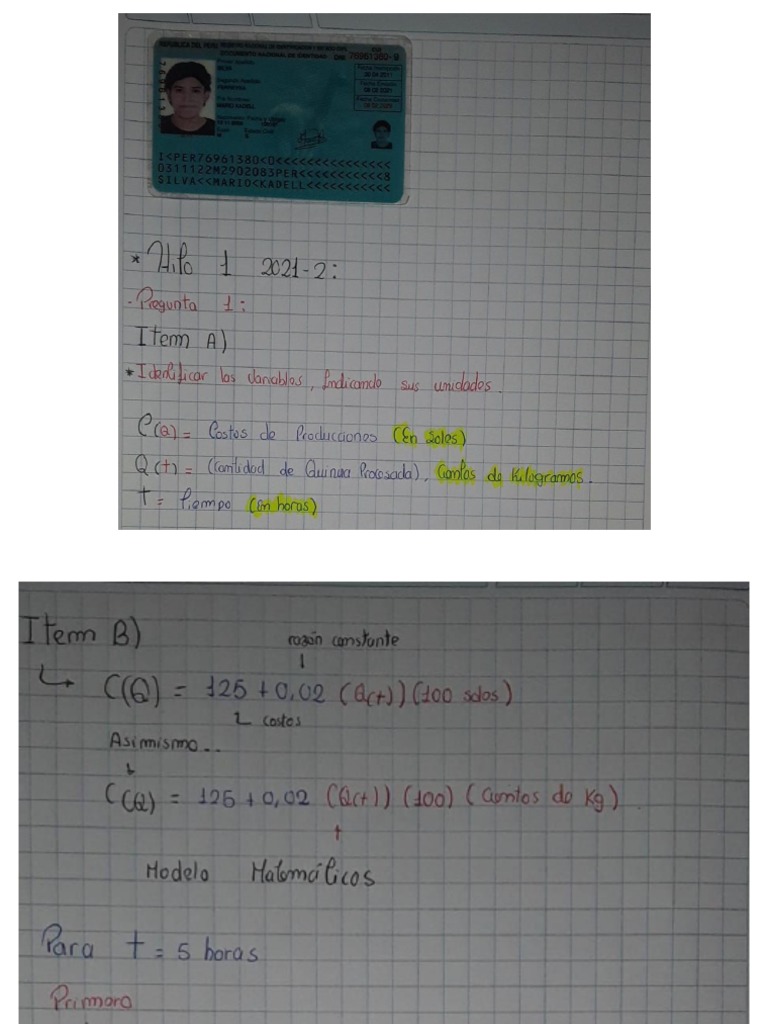 REPUBLICA DEL PERU REGISTRO NACIONAL DE IDENTIFICACION Y ESTADO CIVIL
DOCUMENTO NACIONAL DE IDENTIDAD DNI 76961380-0
I<PER76961380<0<<<<<<<<<<<<<<<<
0311122M2902083PER<<<<<<<<<<<8
SILVA<<MARIO<KADELL<<<<<<<<<<<
* Hito 1 2021-2:
- Pregunta 1:
Item A)
* Identificar las variables, Indicando sus unidades.
C(Q) = Costos de Producciones (En Soles)
Q(t) = (Cantidad de Quinua Procesada), Cientos de Kilogramos.
t = Tiempo (En horas)
Item B)
razón constante
C(Q) = 125 + 0,02 (Q(t)) (100 soles)
costos
Asimismo...
C(Q) = 125 + 0,02 (Q(t)) (100) (Cientos de Kg)
Modelo Matemáticos
Para t = 5 horas
Primero